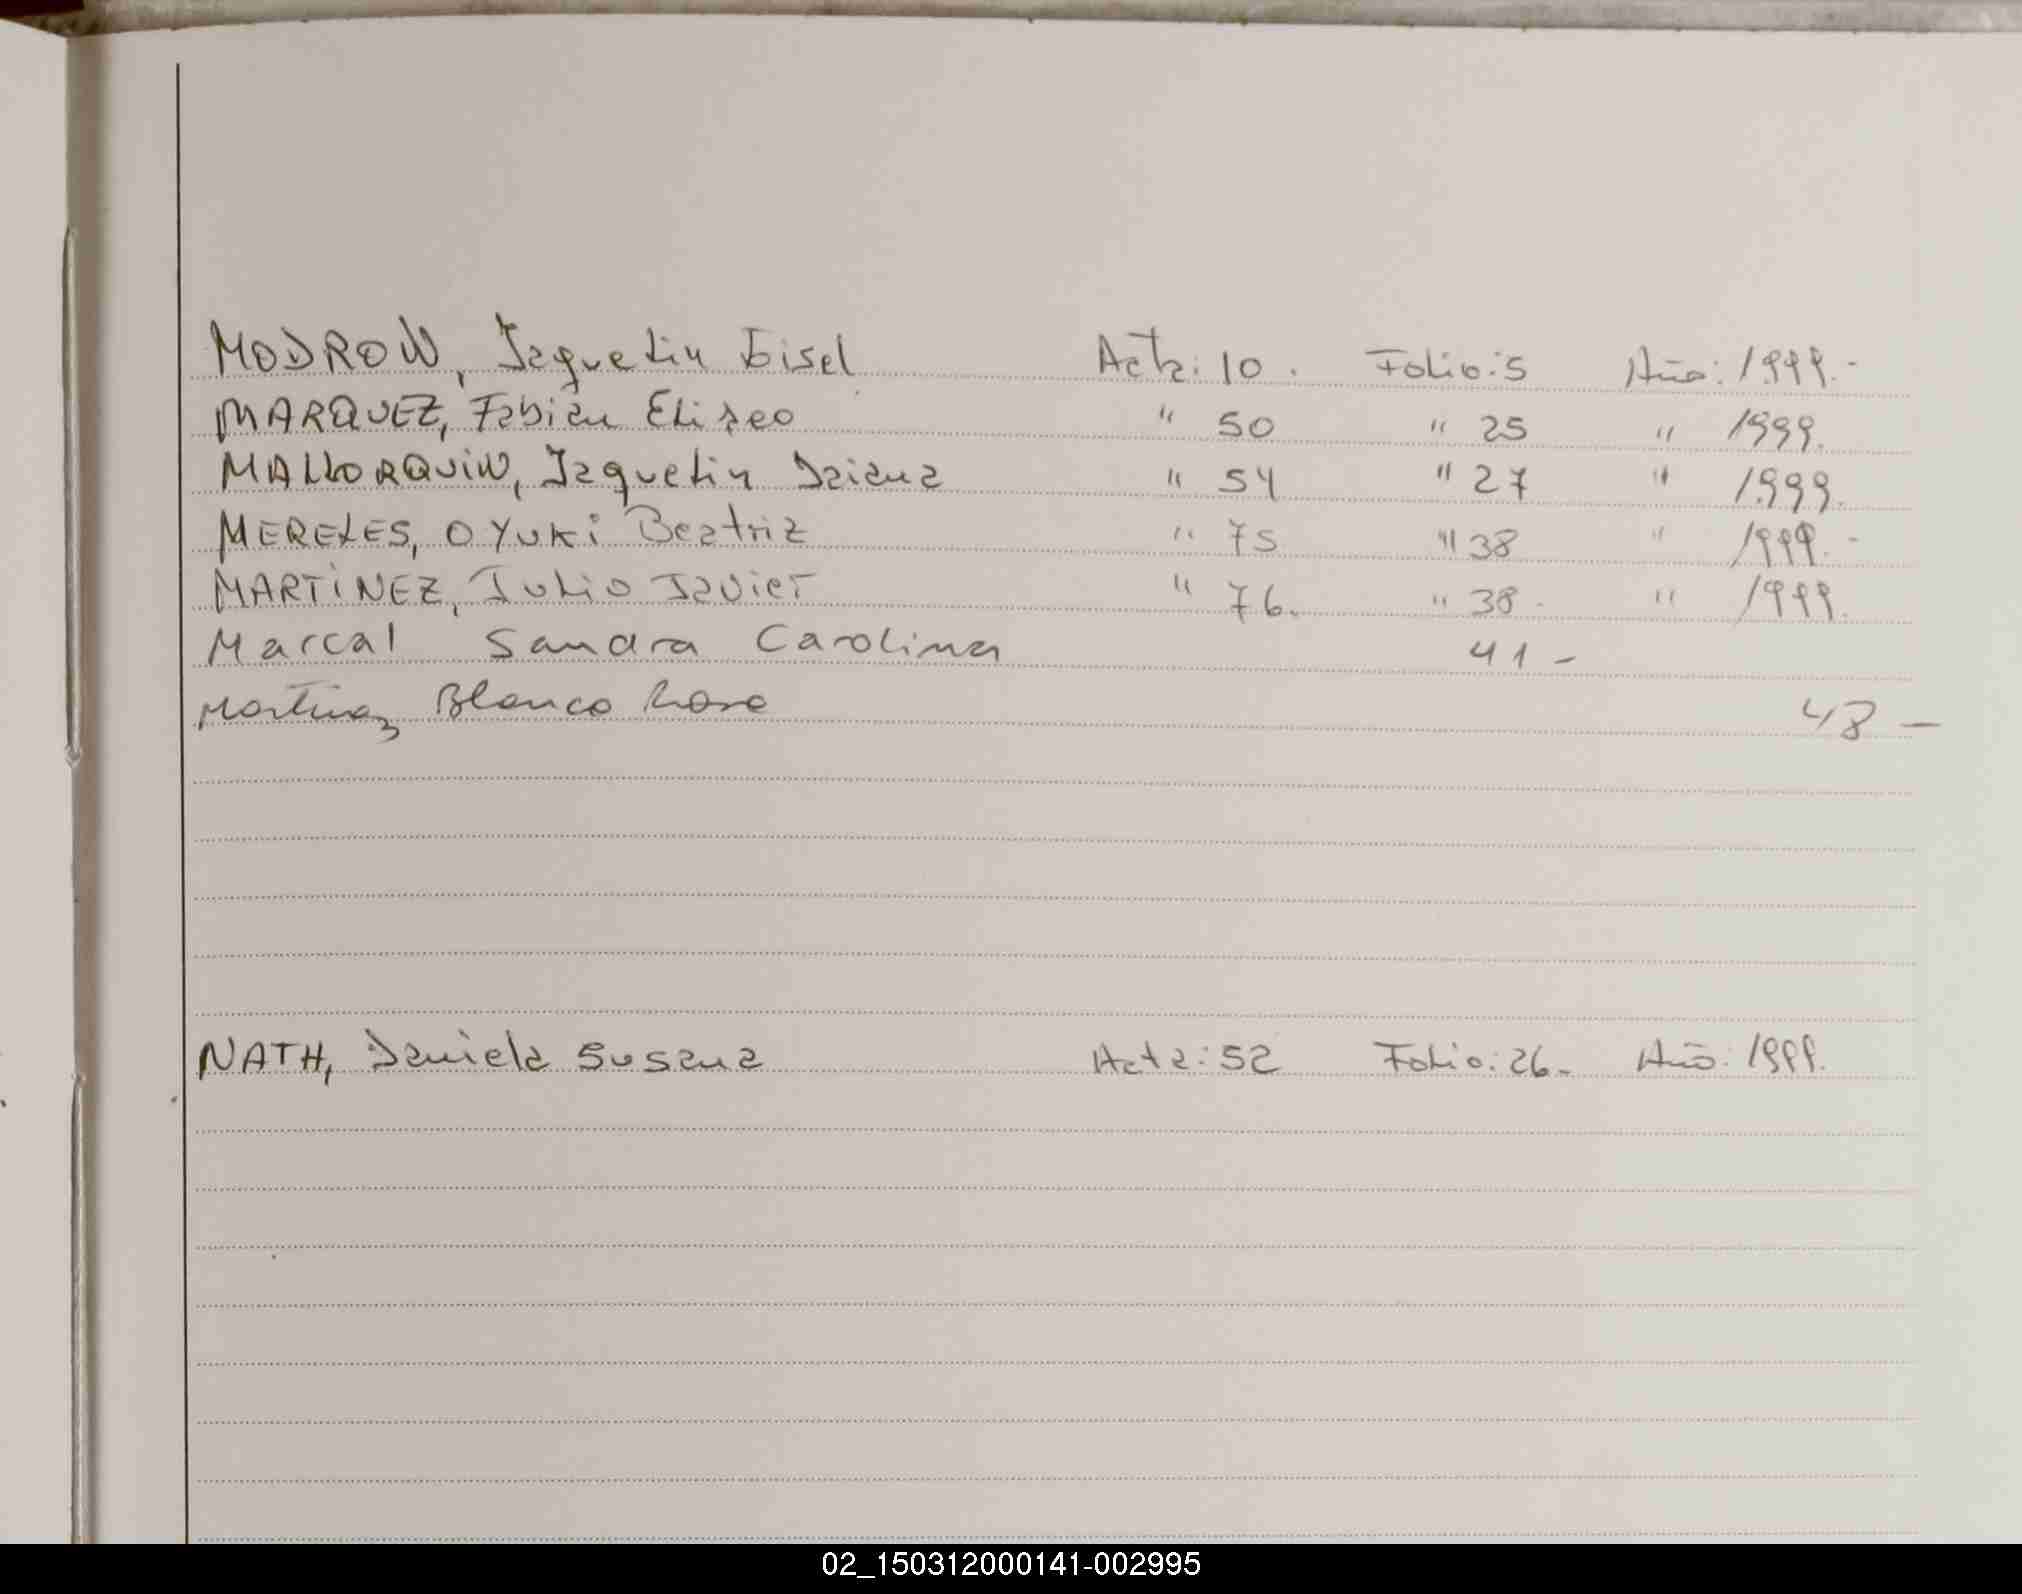 MODRON, Jaquelin Gisel Acta: 10. Folio: 5 Año: 1999.-
MARQUEZ, Fabian Eliseo " 50 " 25 " 1999.
MALLORQUiN, Jaquelin Daiana " 54 " 27 " 1999.
MERELES, OYUKi Beatriz " 75 " 38 " 1999.-
MARTiNEZ, Julio Javier " 76. " 38- " 1999.
Marcal Sandra Carolina 41-
Martinez Blanca Rosa 48-
NATH, Daniela Susana Acta: 52 Folio: 26.- Año: 1999.
02_150312000141-002995